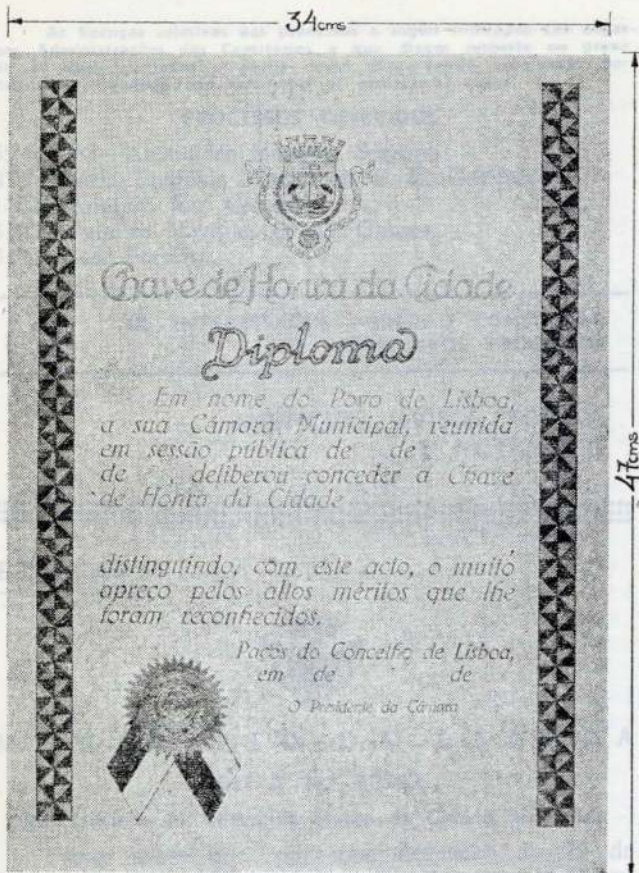 34 cms
47 cms
Chave de Honra da Cidade
Diploma
Em nome do Povo de Lisboa,
a sua Câmara Municipal, reunida
em sessão pública de de
de , deliberou conceder a Chave
de Honra da Cidade
distinguindo, com este acto, o muito
apreço pelos altos méritos que lhe
foram reconhecidos.
Paços do Concelho de Lisboa,
em de de
O Presidente da Câmara